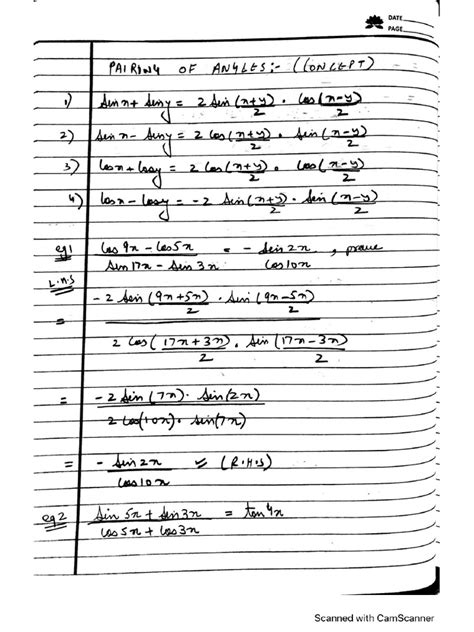 DATE
PAGE
PAIRING OF ANGLES :- (CONCEPT)
1) Sin x + Sin y = 2 Sin (x+y)/2 . Cos (x-y)/2
2) Sin x - Sin y = 2 Cos (x+y)/2 . Sin (x-y)/2
3) Cos x + Cos y = 2 Cos (x+y)/2 . Cos (x-y)/2
4) Cos x - Cos y = -2 Sin (x+y)/2 . Sin (x-y)/2
eg1 Cos 9x - Cos 5x / Sin 17x - Sin 3x = - Sin 2x / Cos 10x , prove
L.H.S
= -2 Sin (9x+5x)/2 . Sin (9x-5x)/2 / 2 Cos (17x+3x)/2 . Sin (17x-3x)/2
= -2 Sin (7x) . Sin (2x) / 2 Cos (10x) . Sin (7x)
= - Sin 2x / Cos 10x (R.H.S)
eg2 Sin 5x + Sin 3x / Cos 5x + Cos 3x = tan 4x
Scanned with CamScanner